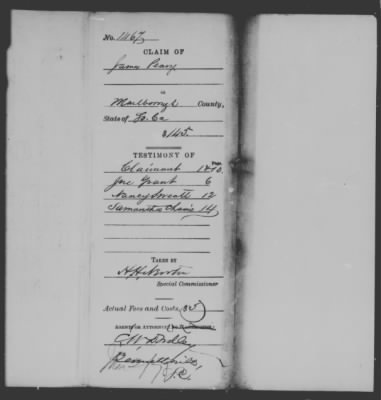 No. 1467
CLAIM OF
James Peary
in
Marlborough County,
State of So. Ca
$145.
TESTIMONY OF
Page.
Claimant 1 & 10.
Joe Grant 6
Nancy 12
Samantha 14
TAKEN BY
Special Commissioner
Actual Fees and Costs, $5
AGENT OR ATTORNEY
C W Dudley
Bennettsville,
S.C.